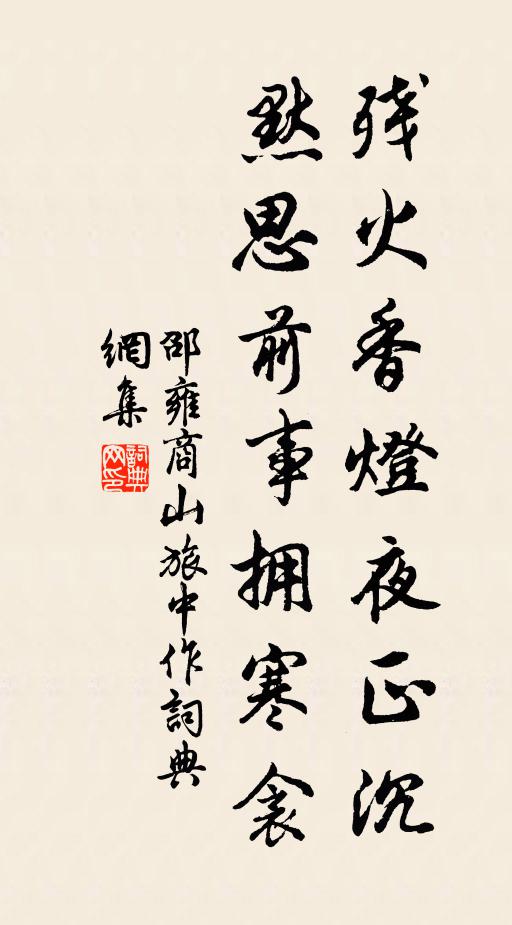 残火香燈夜正沉
默思前事拥寒衾
邵雍商山旅中作詞典
網集
詞典网印